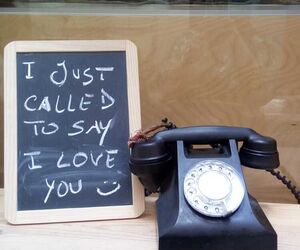 I JUST
CALLED
TO SAY
I LOVE
YOU